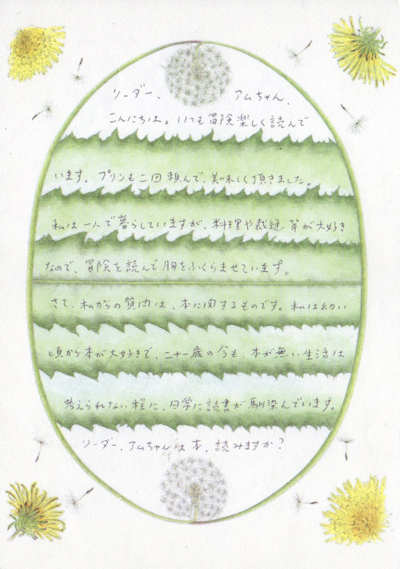 リーダー、 アムちゃん、
こんにちは。いつも冒険楽しく読んで
います。プリンも二回頼んで、美味しく頂きました。
私は一人で暮らしていますが、料理や裁縫、等が大好き
なので、冒険を読んで胸をふくらませています。
さて、私からの質問は、本に関するものです。私は幼い
頃から本が大好きで、二十一歳の今も、本が無い生活は
考えられない程に、日常に読書が馴染んでいます。
リーダー、アムちゃんは本、読みますか?